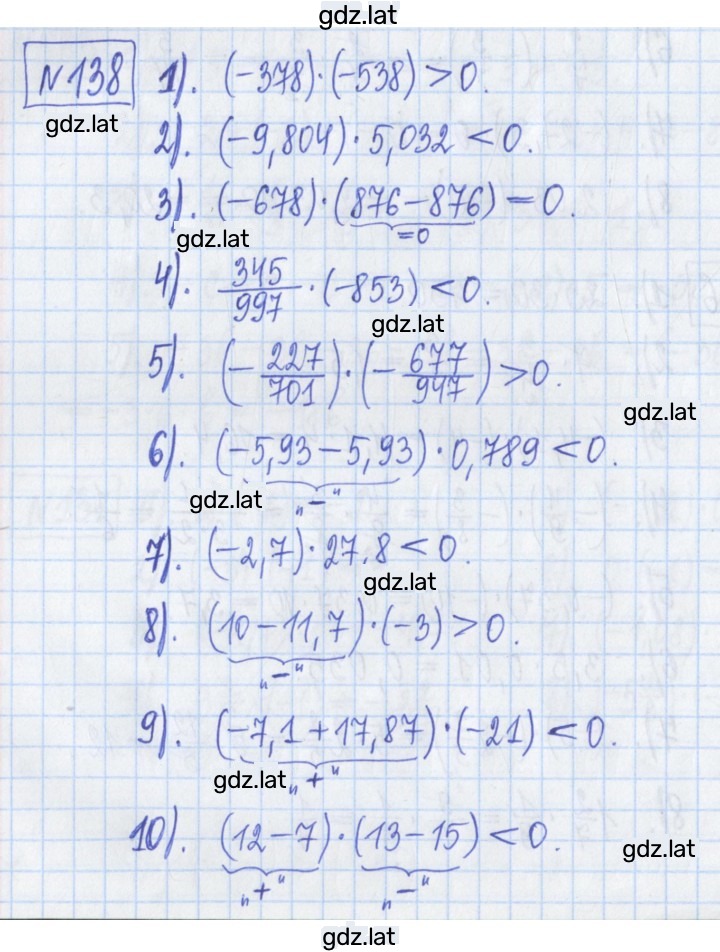 gdz.lat
№138 1). (−378)·(−538) > 0.
gdz.lat
2). (−9,804)·5,032 < 0.
3). (−678)·(876−876) = 0.
=0
gdz.lat
4). 345/997 · (−853) < 0.
gdz.lat
5). (−227/701)·(−677/997) > 0.
gdz.lat
6). (−5,93−5,93)·0,789 < 0.
„−“
gdz.lat
7). (−2,7)·27.8 < 0.
gdz.lat
8). (10−11,7)·(−3) > 0.
„−“
9). (−7,1+17,87)·(−21) < 0.
„+“
gdz.lat
10). (12−7)·(13−15) < 0.
gdz.lat
„+“ „−“
gdz.lat